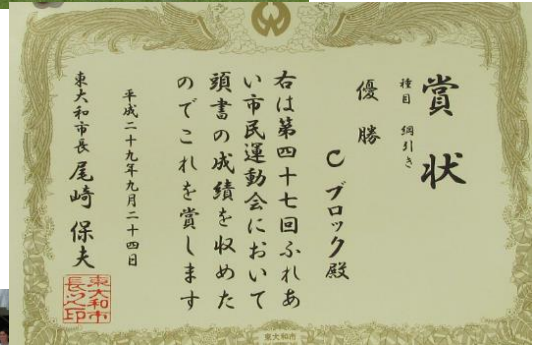 賞状
種目 綱引き
優勝
C ブロック殿
右は第四十七回ふれあ
い市民運動会において
頭書の成績を収めた
のでこれを賞します
平成二十九年九月二十四日
東大和市長 尾崎保夫
東大和市
長之印
東大和市